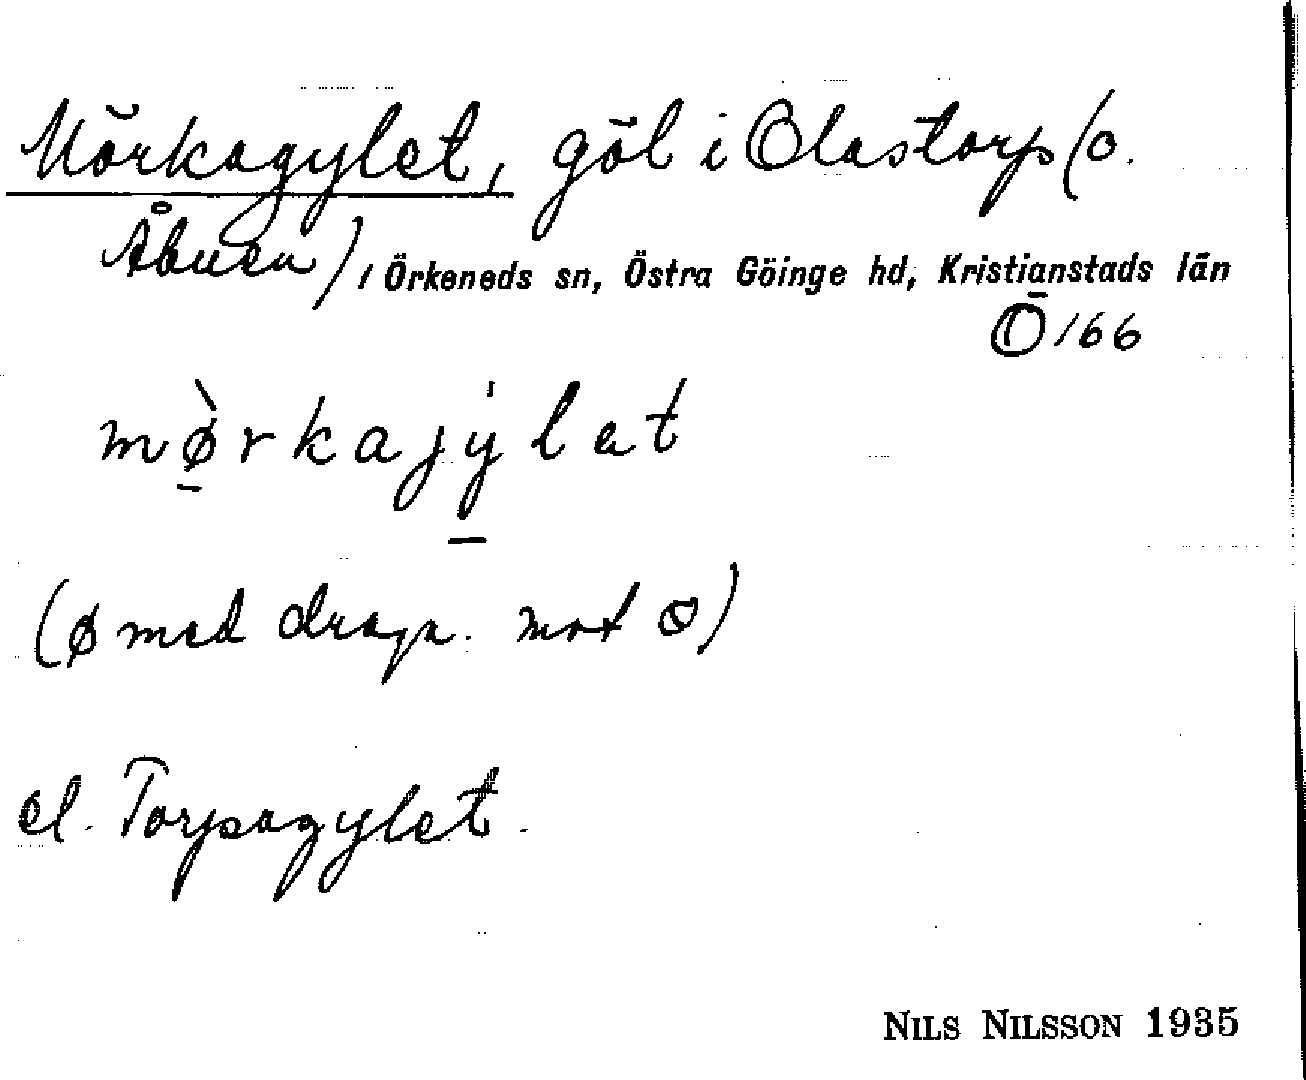 Mörkagylet, göl i Olastorp (o.
Åbuen), Örkeneds sn, Östra Göinge hd, Kristianstads län
Ö 166
mø̀rkajy̍lat
(ø med dragn. mot ɵ)
el. Torpagylet.
NILS NILSSON 1935